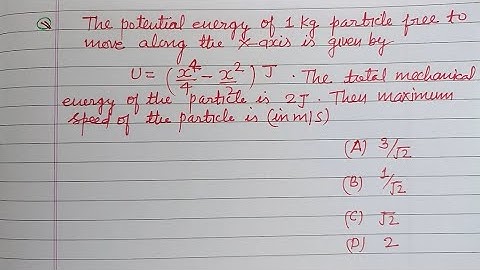 Q The potential energy of 1 kg particle free to
move along the x-axis is given by
U = (x⁴/4 - x²/2) J . The total mechanical
energy of the particle is 2J. Then maximum
speed of the particle is (in m/s)
(A) 3/√2
(B) 1/√2
(C) √2
(D) 2